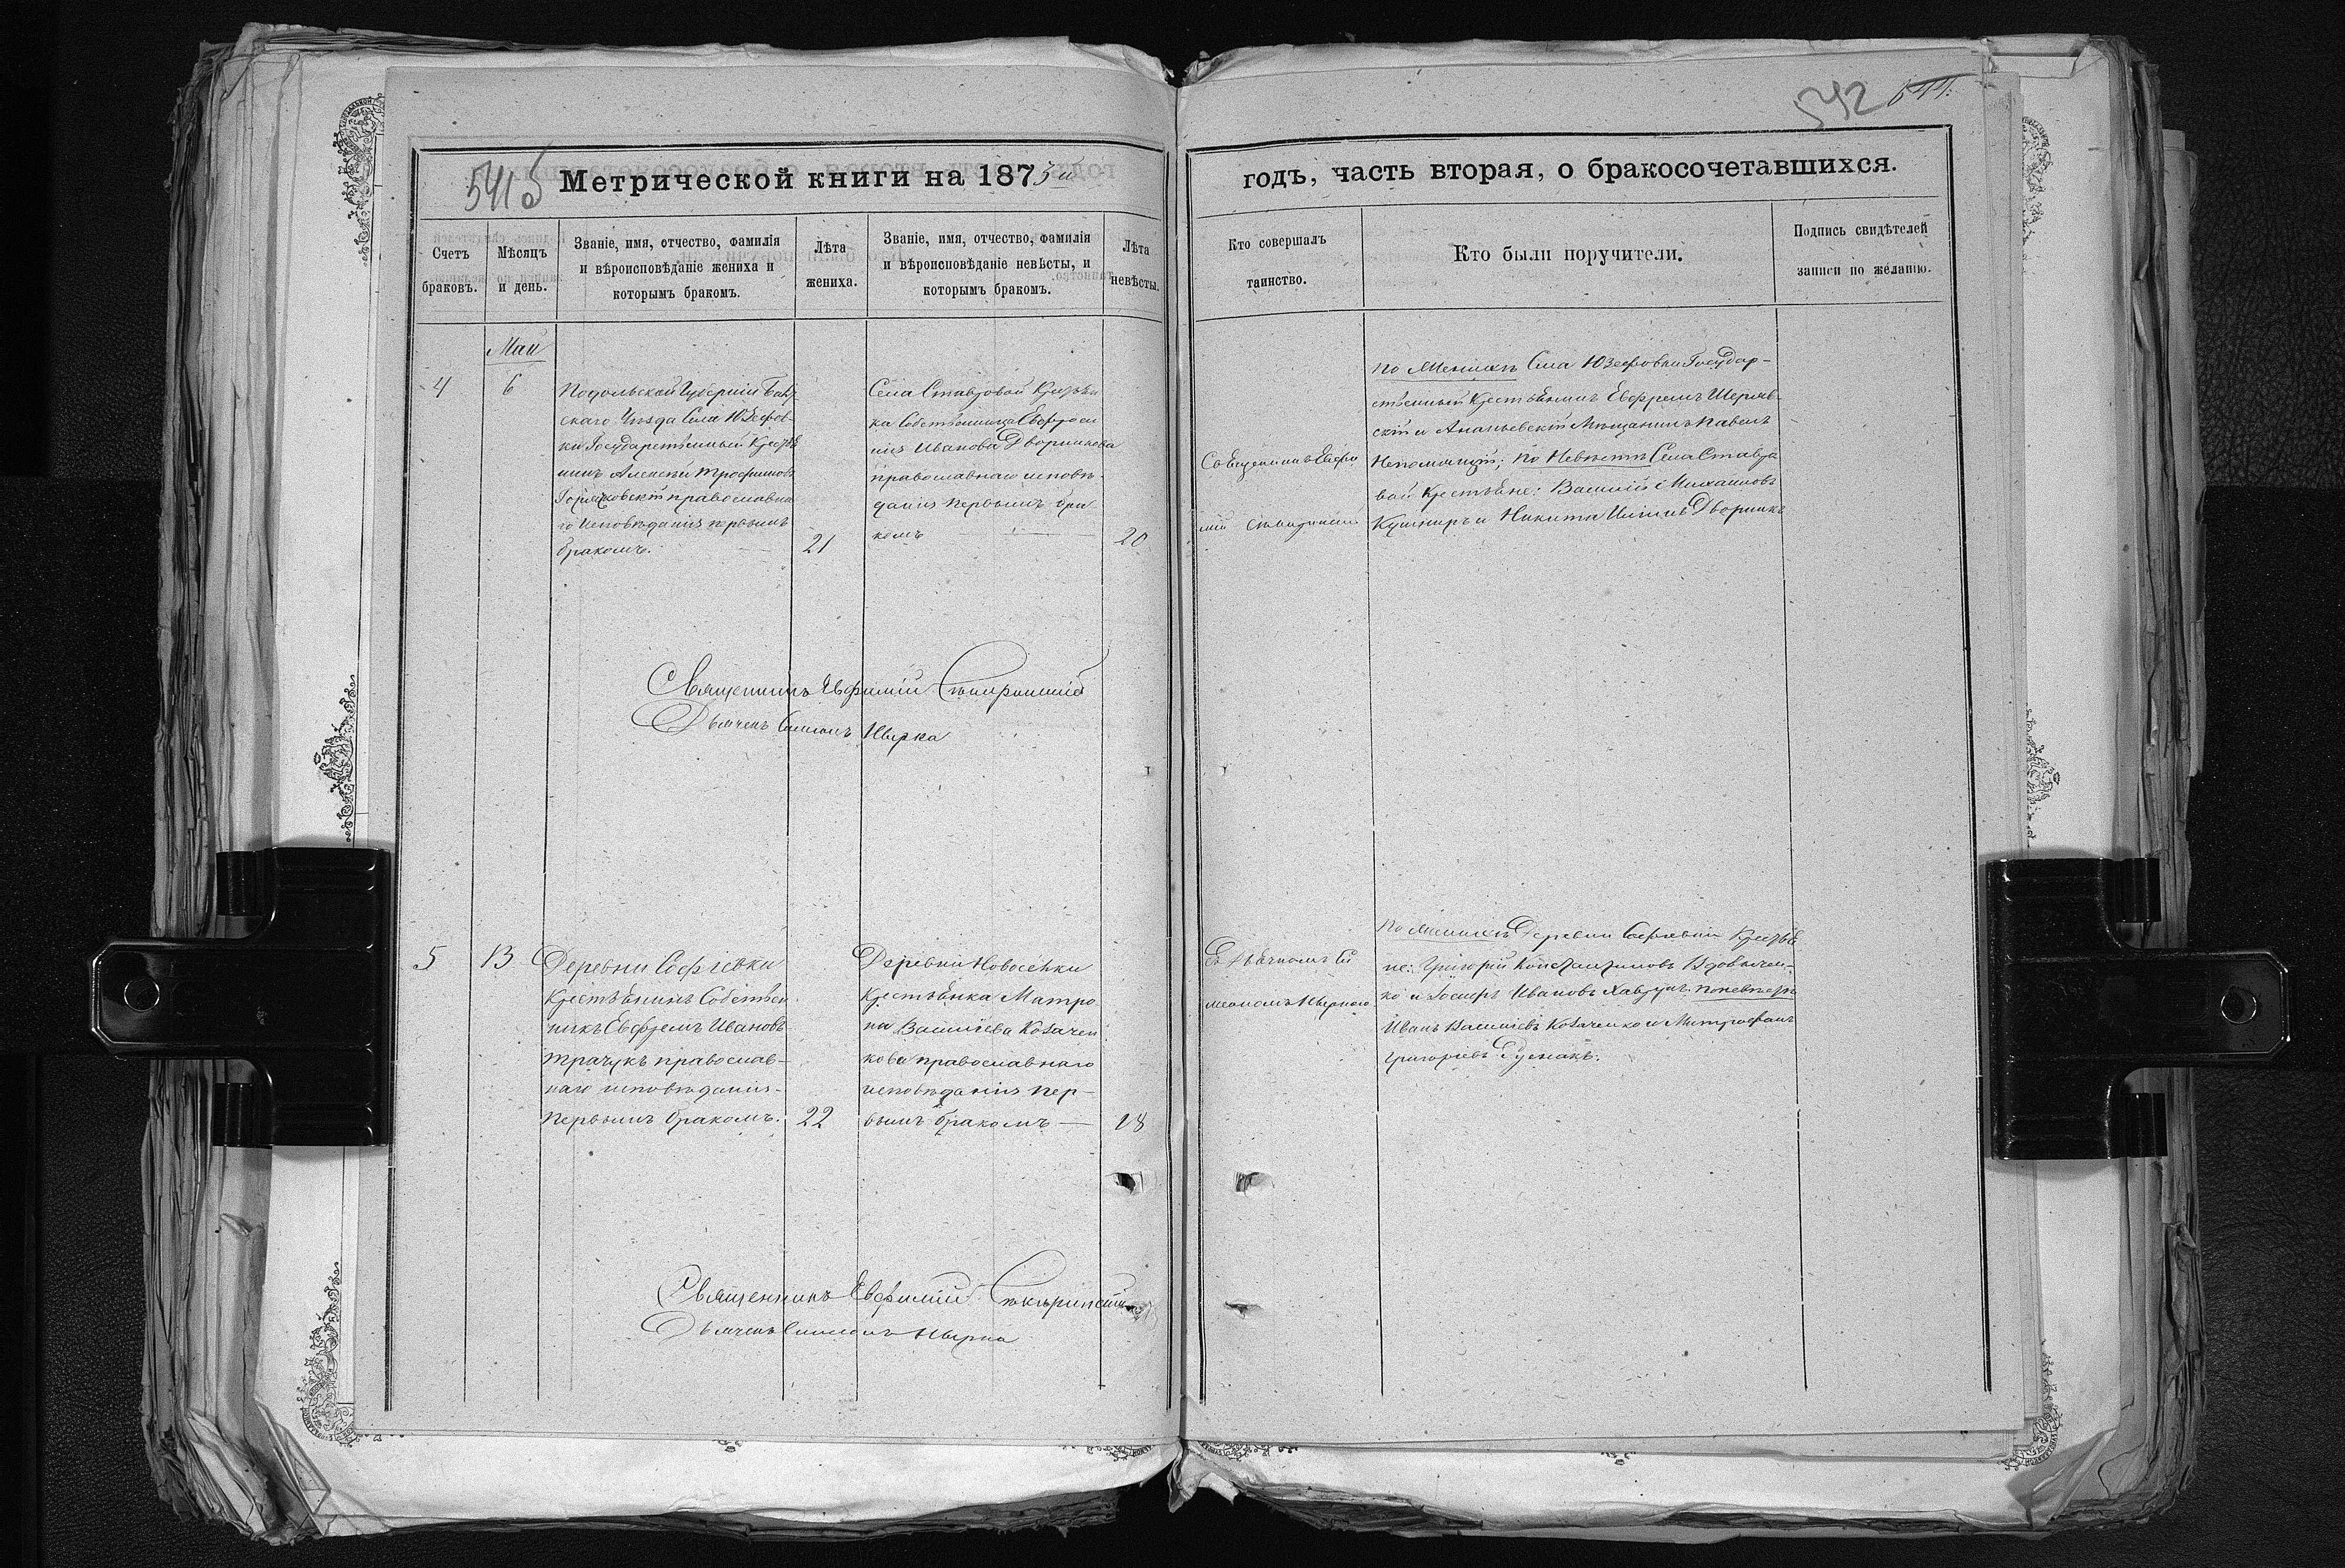 542
541б
Метрической книги на 1873 й
годъ, часть вторая, о бракосочетавшихся.
Счетъ браковъ.
Мѣсяцъ и день.
Званіе, имя, отчество, фамилія
и вѣроисповѣданіе жениха и
которымъ бракомъ.
Лѣта жениха.
Званіе, имя, отчество, фамилія
и вѣроисповѣданіе невѣсты, и
которымъ бракомъ.
Лѣта невѣсты.
Кто совершалъ
таинство.
Кто были поручители.
Подпись свидѣтелей
записи по желанію.
Маи
4
6
Подольской Губерніи Балт
скаго Уѣзда Села Юзефов-
ки Государственный Крестья
нинъ Алексѣй Трофимовъ
православна
го исповѣданія первымъ
бракомъ.
21
Села Ставровой Крестьян
ка Собственница Евфроси
нія Иванова Дворникова
православнаго исповѣ-
данія первымъ бра
комъ
20
Священникъ Евфи
мій
По Женихѣ Села Юзефовки Государ-
ственный Крестьянинъ Евфремъ
скій и Ананьевскій Мѣщанинъ Павелъ
Непомнящій; по Невѣстѣ Села Ставро
вой Крестьяне: Василій Михаиловъ
Кушниръ и Никита Дворникъ
Священникъ Евфимій
Дьячекъ Симеонъ
5
13
Деревни Софіевки
Крестьянинъ Собствен
никъ Евфремъ Ивановъ
Трачукъ православ-
наго исповѣданія
первымъ бракомъ.
22
Деревни Новоселки
Крестьянка Матро
на Василіева Козачен
кова православнаго
исповѣданія пер-
вымъ бракомъ
18
Съ Дьячкомъ Си
меономъ
По Женихѣ Деревни Софіевки Крестья
не: Григорій Константиновъ Вдовичен-
ко и Іосифъ Ивановъ по невѣстѣ
Иванъ Василіевъ Козаченко и Митрофанъ
Григоріевъ
Священникъ Евфимій
Дьячекъ Симеонъ